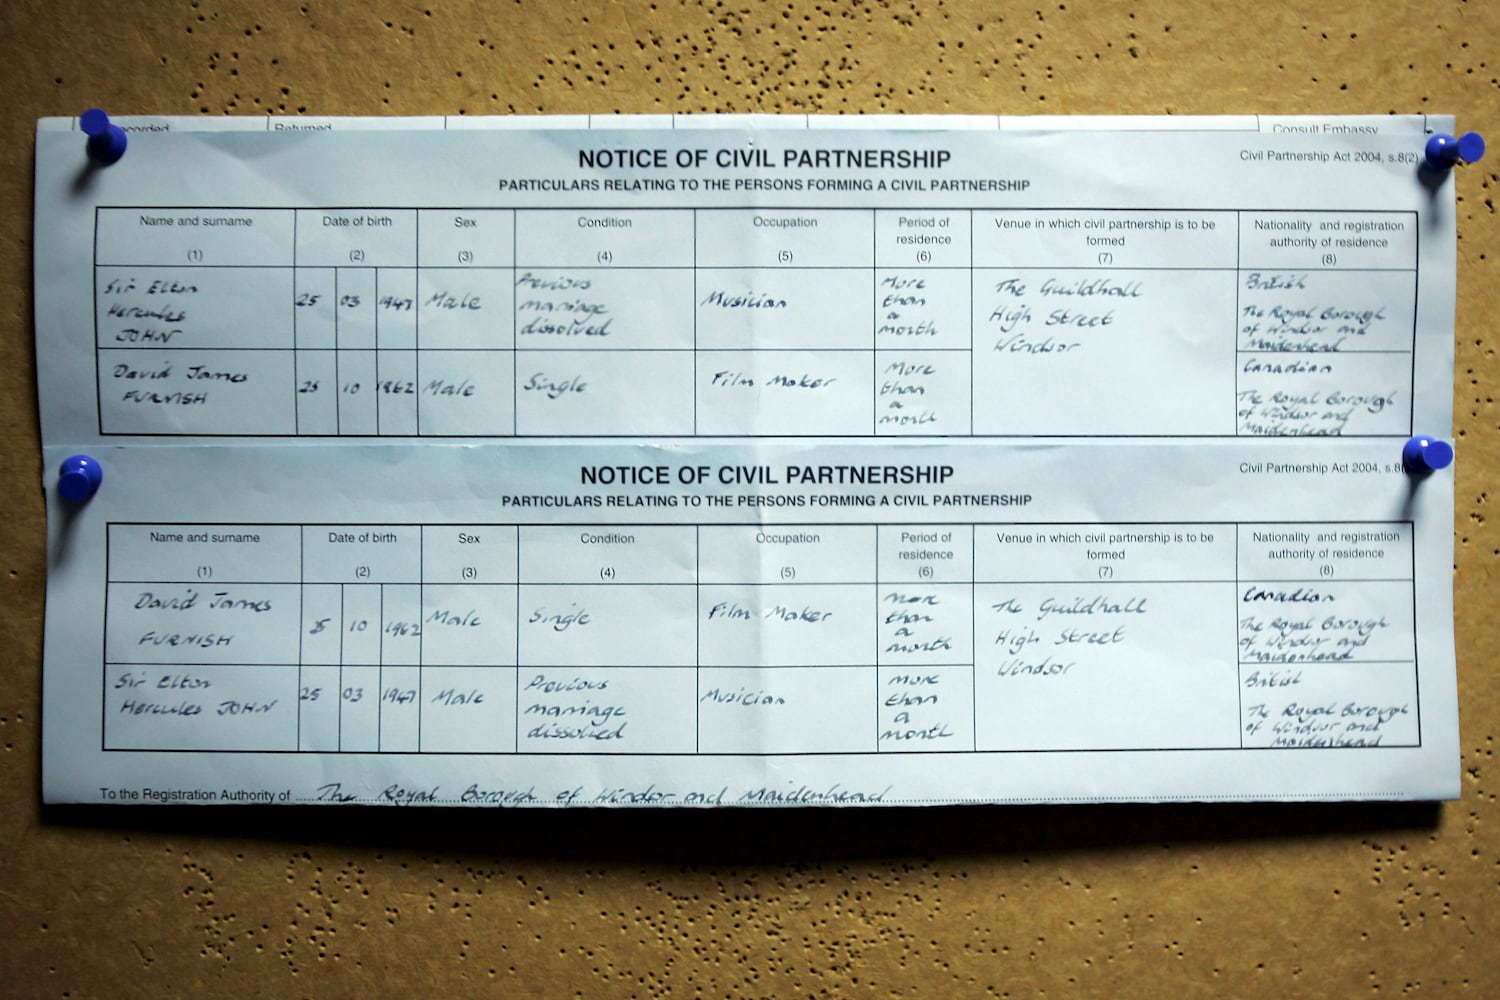 Recorded Returned Consult Embassy
NOTICE OF CIVIL PARTNERSHIP
Civil Partnership Act 2004, s.8(2)
PARTICULARS RELATING TO THE PERSONS FORMING A CIVIL PARTNERSHIP
Name and surname
(1)
Date of birth
(2)
Sex
(3)
Condition
(4)
Occupation
(5)
Period of
residence
(6)
Venue in which civil partnership is to be
formed
(7)
Nationality and registration
authority of residence
(8)
Sir Elton
Hercules
JOHN
25 03 1947
Male
Previous
marriage
dissolved
Musician
More
than
a
month
The Guildhall
High Street
Windsor
British
The Royal Borough
of Windsor and
Maidenhead
David James
FURNISH
25 10 1962
Male
Single
Film Maker
More
than
a
month
Canadian
The Royal Borough
of Windsor and
Maidenhead
NOTICE OF CIVIL PARTNERSHIP
Civil Partnership Act 2004, s.8
PARTICULARS RELATING TO THE PERSONS FORMING A CIVIL PARTNERSHIP
Name and surname
(1)
Date of birth
(2)
Sex
(3)
Condition
(4)
Occupation
(5)
Period of
residence
(6)
Venue in which civil partnership is to be
formed
(7)
Nationality and registration
authority of residence
(8)
David James
FURNISH
25 10 1962
Male
Single
Film Maker
more
than
a
month
The Guildhall
High Street
Windsor
Canadian
The Royal Borough
of Windsor and
Maidenhead
Sir Elton
Hercules JOHN
25 03 1947
Male
Previous
marriage
dissolved
Musician
more
than
a
month
British
The Royal Borough
of Windsor and
Maidenhead
To the Registration Authority of The Royal Borough of Windsor and Maidenhead